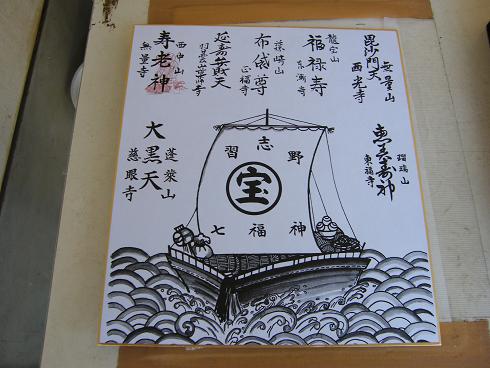 無量山
毘沙門天
西光寺
龍宝山
福禄寿
東漸寺
布袋尊
正福寺
延寿弁財天
西中山
寿老神
無量寺
瑠璃山
恵美寿神
東福寺
蓬萊山
大黒天
慈眼寺
習志野
宝
七福神